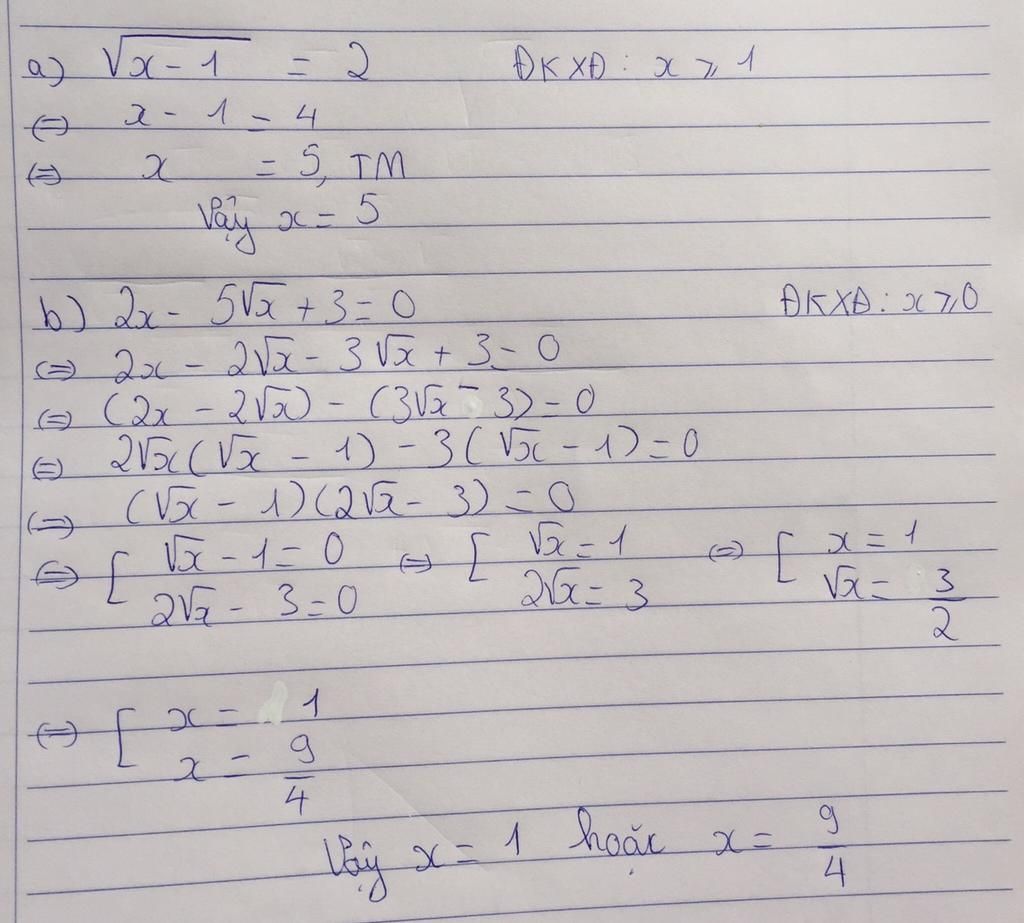 a) √(x - 1) = 2 ĐKXĐ: x ⩾ 1
⇔ x - 1 = 4
⇔ x = 5, TM
Vậy x = 5
b) 2x - 5√x + 3 = 0 ĐKXĐ: x ⩾ 0
⇔ 2x - 2√x - 3√x + 3 = 0
⇔ (2x - 2√x) - (3√x - 3) = 0
⇔ 2√x(√x - 1) - 3(√x - 1) = 0
⇔ (√x - 1)(2√x - 3) = 0
⇔ [ √x - 1 = 0 ⇔ [ √x = 1 ⇔ [ x = 1
2√x - 3 = 0 2√x = 3 √x = 3/2
⇔ [ x = 1
x = 9/4
Vậy x = 1 hoặc x = 9/4